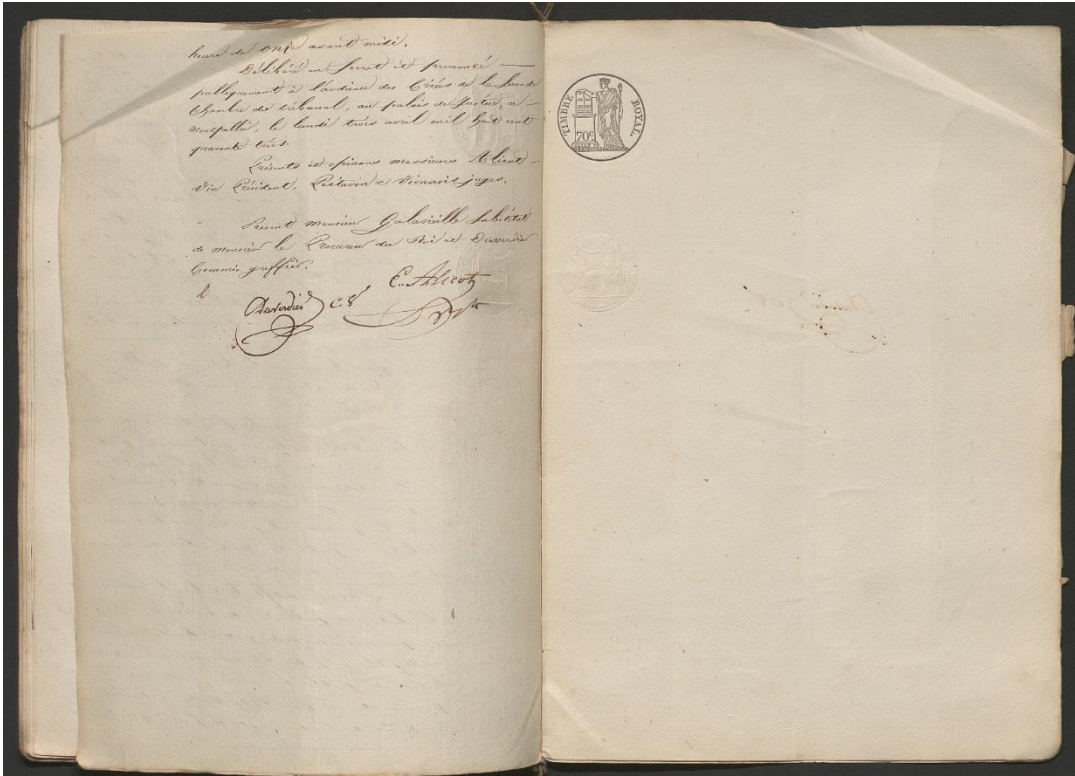 heure de onze avant midi.
Délibéré en secret et prononcé
publiquement à l'audience des Criées de la
Chambre du tribunal, au palais de Justice, a
montpellier, le lundi trois avril mil huit cent
quarante trois.
Présents et opinans messieurs Alicot
Vice Président, Viennois juges.
Present monsieur Galavielle substitut
de monsieur le Procureur du Roi et Daverdier
Commis greffier.
Daverdier C. g
E. Alicot
TIMBRE ROYAL
70c